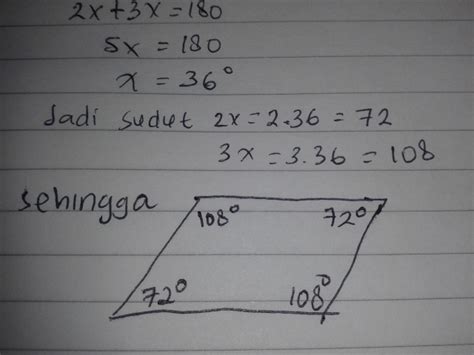 2x+3x=180
5x=180
x=36°
Jadi sudut 2x=2.36=72
3x=3.36=108
sehingga
108° 72°
72° 108°